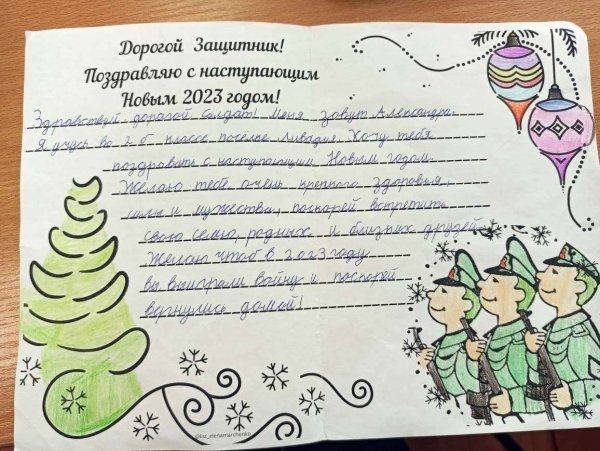 Дорогой Защитник!
Поздравляю с наступающим
Новым 2023 годом!
Здравствуй дорогой солдат! Меня зовут Александра.
Я учусь во 2 б классе посёлке Ливадия. Хочу тебя
поздравить с наступающим Новым годом.
Желаю тебе очень крепкого здоровья,
силы и мужества, поскорей встретить
свою семью, родных и близких друзей.
Желаю чтоб в 2023 году
вы выиграли войну и поскорей
вернулись домой!
@list_elenamarchenko